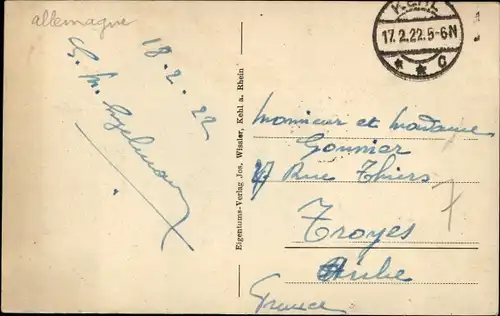 allemagne
KEHL
17.2.22.5-6N
* * c
18.2.22
Eigentums-Verlag Jos. Wissler, Kehl a. Rhein
Monsieur et Madame
Gonnier
Rue Thiers
Troyes
Aube
France